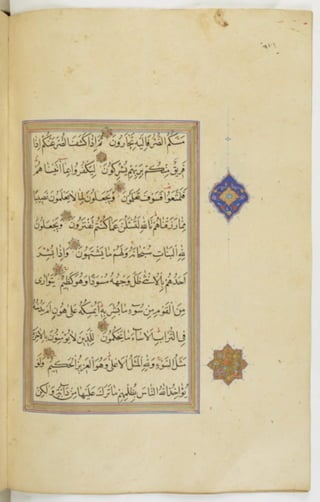 مسكم الضر فإليه تجأرون ثم إذا كشف الضر عنكم إذا
فريق منكم بربهم يشركون ليكفروا بما آتيناهم
فتمتعوا فسوف تعلمون ويجعلون لما لا يعلمون نصيبا
مما رزقناهم تالله لتسئلن عما كنتم تفترون ويجعلون
لله البنات سبحانه ولهم ما يشتهون وإذا بشر
أحدهم بالأنثى ظل وجهه مسودا وهو كظيم يتوارى
من القوم من سوء ما بشر به أيمسكه على هون أم يدسه
في التراب ألا ساء ما يحكمون للذين لا يؤمنون بالآخرة
مثل السوء ولله المثل الأعلى وهو العزيز الحكيم ولو
يؤاخذ الله الناس بظلمهم ما ترك عليها من دابة ولكن